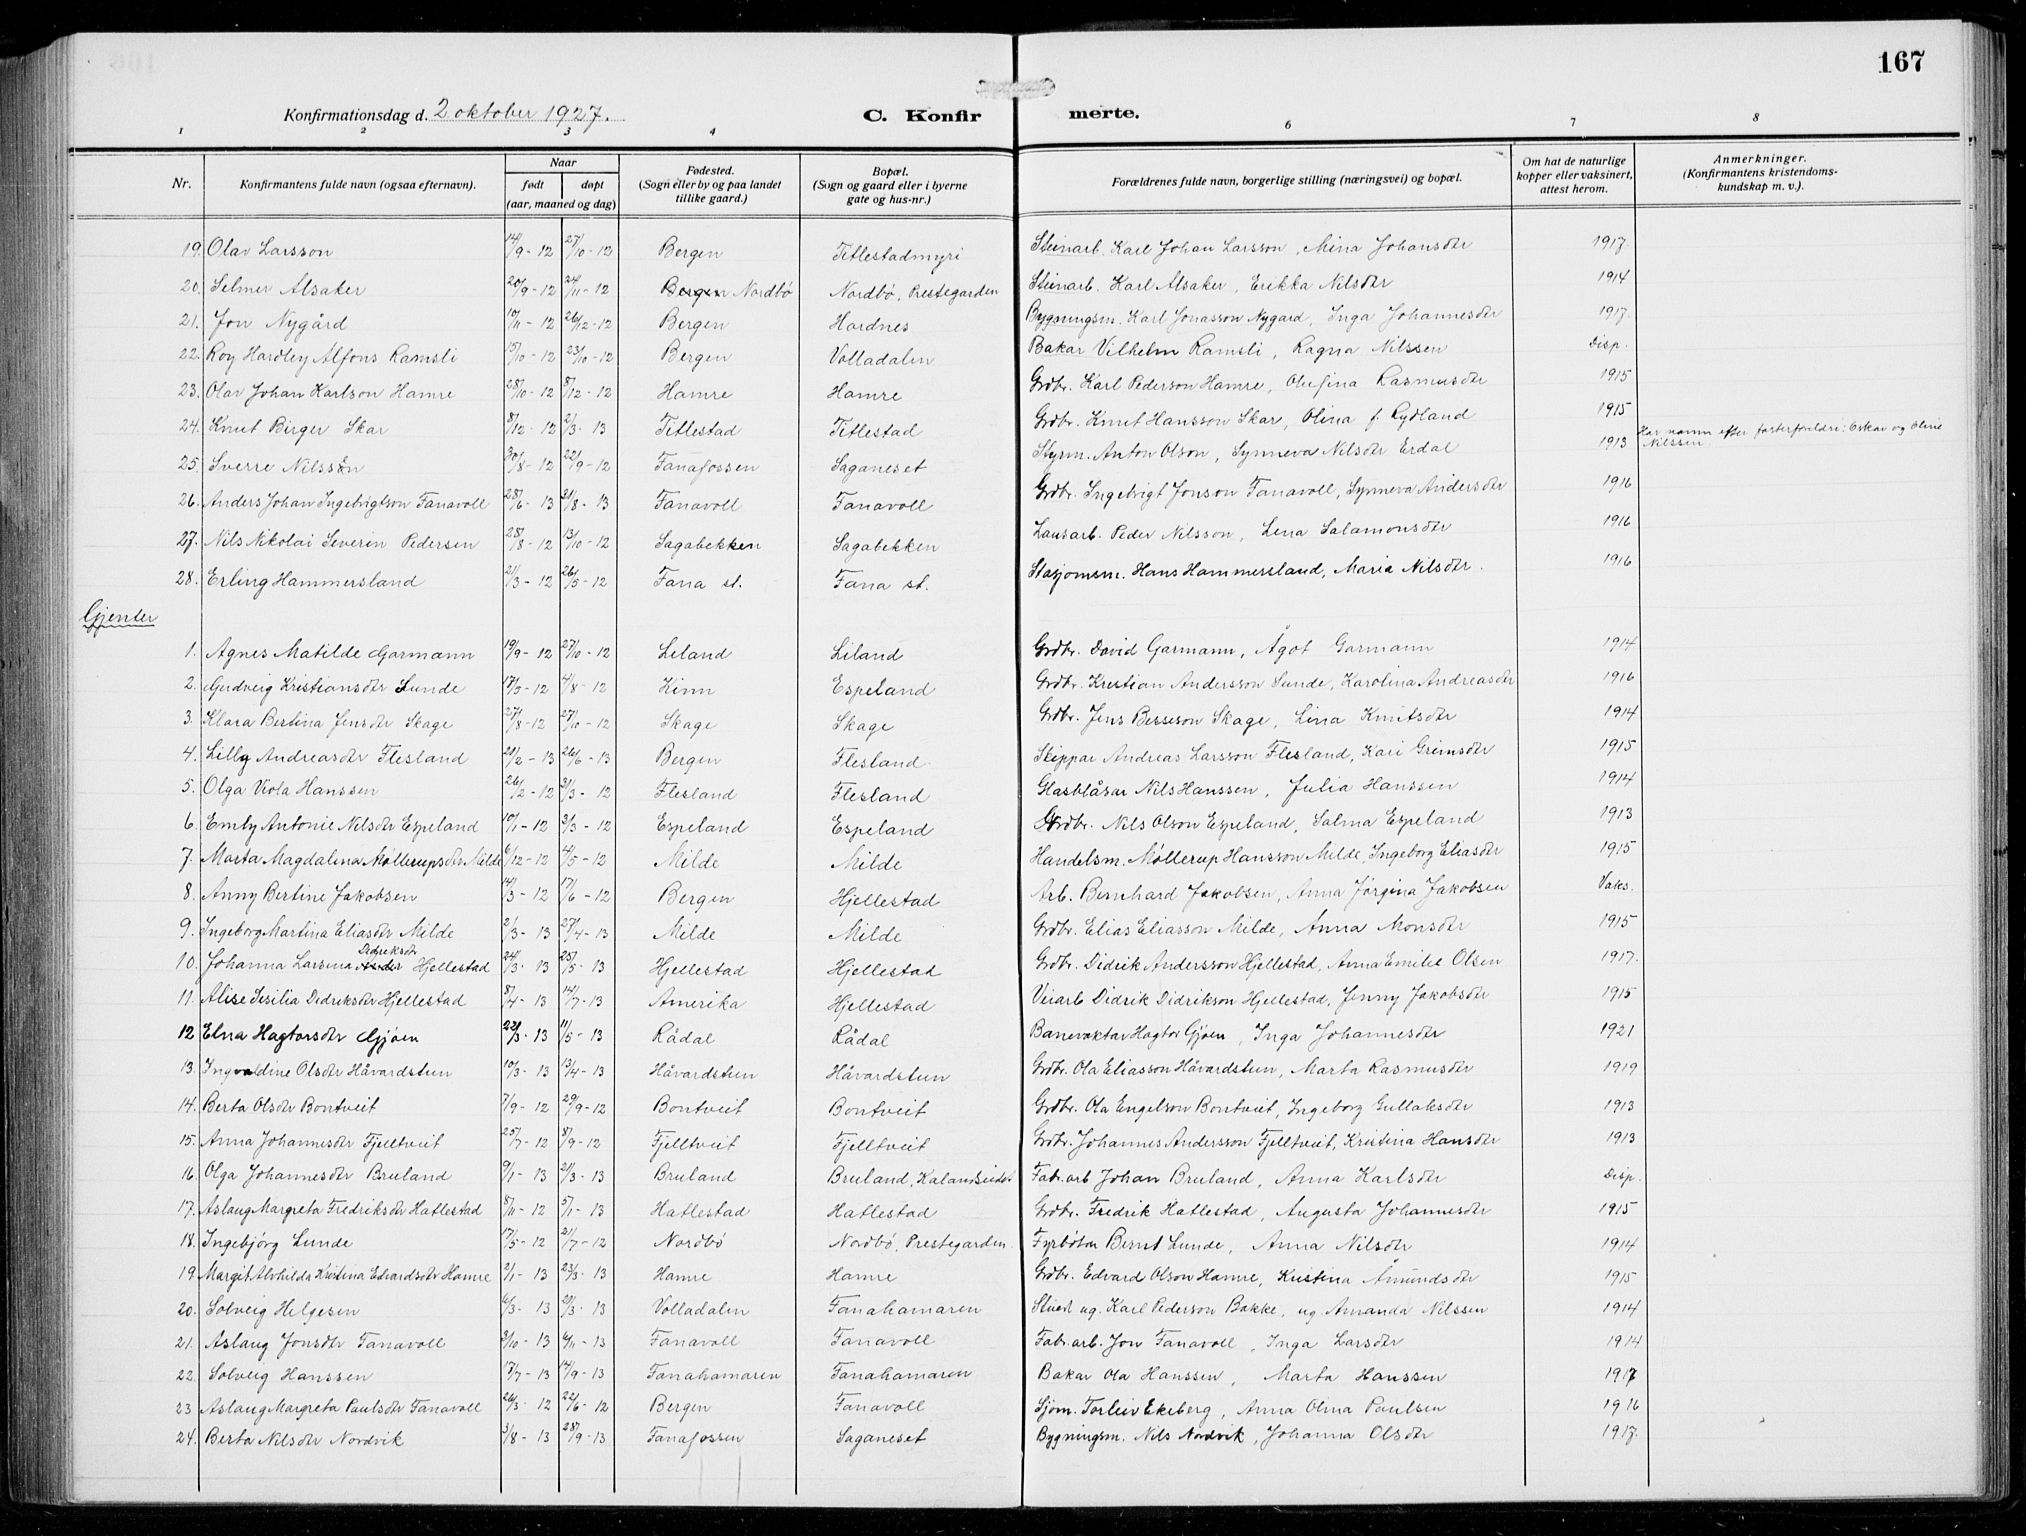 167
Konfirmationsdag d. 2 oktober 1927. C. Konfir merte.
1 2 3 4 6 7 8
Nr. Konfirmantens fulde navn (ogsaa efternavn). Naar født døpt (aar, maaned og dag) Fødested. (Sogn eller by og paa landet tillike gaard.) Bopæl. (Sogn og gaard eller i byerne gate og hus-nr.) Forældrenes fulde navn, borgerlige stilling (næringsvei) og bopæl. Om hat de naturlige kopper eller vaksinert, attest herom. Anmerkninger. (Konfirmantens kristendoms-kundskap m. v.).
19. Olav Larsson 14/9 - 12 27/10 - 12 Bergen Titlestadmyri Steinarb. Karl Johan Larsson, Mina Johansdtr 1917.
20. Selmer Alsaker 20/9 - 12 24/11 - 12 Bergen Nordbö Nordbö, Prestegarden Steinarb. Karl Alsaker, Erikka Nilsdtr 1914
21. Jon Nygård 10/11 - 12 26/12 - 12 Bergen Hordnes Bygningsm. Karl Jonasson Nygard, Inga Johannesdtr 1917.
22. Roy Hardley Alfons Ramsli 15/10 - 12 23/10 - 12 Bergen Volladalen Bakar Vilhelm Ramsli, Ragna Nilssen Disp.
23. Olav Johan Karlson Hamre 28/10 - 12 8/12 - 12 Hamre Hamre Grdbr. Karl Pederson Hamre, Olufina Rasmusdtr 1915
24. Knut Birger Skar 8/12 - 12 2/3 - 13 Titlestad Titlestad Grdbr. Knut Hansson Skar, Olina f. Rydland 1915
25. Sverre Nilssen 30/8 - 12 22/9 - 12 Fanafossen Saganeset Styrm. Anton Olson, Synneva Nilsdtr Erdal 1913 Har namn efter fosterforeldre: Oskar og Oline Nilssen
26. Anders Johan Ingebrigtson Fanavoll 28/6 - 13 31/8 - 13 Fanavoll Fanavoll Grdbr. Ingebrigt Jonson Fanavoll, Synneva Andersdtr 1916
27. Nils Nikolai Severin Pedersen 28/8 - 12 13/10 - 12 Sagabekken Sagabekken Lausarb. Peder Nilsson, Lena Salamonsdtr 1916
28. Erling Hammersland 21/3 - 12 26/5 - 12 Fana st. Fana st. Stasjonsm. Hans Hammersland, Maria Nilsdtr. 1916
Gjenter
1. Agnes Matilde Garmann 19/9 - 12 27/10 - 12 Liland Liland Grdbr. David Garmann, Ågot Garmann 1914
2. Gudveig Kristiansdtr Lunde 4/8 - 12 Kinn Espeland Grdbr. Kristian Andersson Lunde, Karolina Andreasdtr 1916
3. Klara Bertina Jensdtr Skage 27/8 - 12 27/10 - 12 Skage Skage Grdbr. Jens Berseson Skage, Lina Knutsdtr 1914
4. Lilly Andreasdtr Flesland 20/2 - 13 26/6 - 13 Bergen Flesland Skippar Andreas Larsson Flesland, Kari Grimsdtr 1915
5. Olga Viola Hanssen 26/2 - 12 31/3 - 12 Flesland Flesland Glasblåsar Nils Hanssen, Julia Hanssen 1914
6. Emly Antonie Nilsdtr Espeland 10/1 - 12 3/3 - 12 Espeland Espeland Grdbr. Nils Olson Espeland, Salma Espeland 1913
7. Marta Magdalena Møllerupsdtr Milde 6/12 - 12 4/5 - 12 Milde Milde Handelsm. Møllerup Hansson Milde, Ingeborg Eliasdtr 1915
8. Anny Bertine Jakobsen 14/3 - 12 17/6 - 12 Bergen Hjellestad Arb. Bernhard Jakobsen, Anna Jörgina Jakobsen Vaks.
9. Ingeborg Martina Eliasdtr Milde 2/3 - 13 27/4 - 13 Milde Milde Grdbr. Elias Eliasson Milde, Anna Monsdtr 1915
10. Johanna Larsina Didriksdtr Hjellestad 24/3 - 13 25/5 - 13 Hjellestad Hjellestad Grdbr. Didrik Andersson Hjellestad, Anna Emilie Olsen 1917.
11. Alise Sesilia Didriksdtr Hjellestad 8/4 - 13 14/7 - 13 Amerika Hjellestad Veiarb Didrik Didrikson Hjellestad, Jenny Jakobsdtr 1915
12 Elna Hagtorsdtr Gjöen 22/3 - 13 11/5 - 13 Rådal Rådal Banevaktar Hagtor Gjöen, Inga Johannesdtr 1921
13. Ingvaldine Olsdtr Håvardstun 10/3 - 13 13/4 - 13 Håvardstun Håvardstun Grdbr. Ola Eliasson Håvardstun, Marta Rasmusdtr 1919
14. Berta Olsdtr Bontveit 7/9 - 12 29/9 - 12 Bontveit Bontveit Grdbr. Ola Engelson Bontveit, Ingeborg Gullaksdtr 1913
15. Anna Johannesdtr Fjelltveit 25/7 - 12 8/9 - 12 Fjelltveit Fjelltveit Grdbr. Johannes Andersson Fjelltveit, Kristina Hansdtr 1913
16 Olga Johannesdtr Bruland 9/1 - 13 21/3 - 13 Bruland Bruland, Kalandseidet Fabr.arb Johan Bruland, Anna Karlsdtr Disp.
17. Aslaug Margreta Fredriksdtr Hatlestad 8/11 - 12 5/1 - 13 Hatlestad Hatlestad Grdbr. Fredrik Hatlestad, Augusta Johannesdtr 1915
18. Ingebjörg Lunde 17/5 - 12 21/7 - 12 Nordbö Nordbö, Prestegarden. Fyrbötar Bernt Lunde, Anna Nilsdtr 1914
19. Margit Alvhilda Kristina Edvardsdtr Hamre 2/1 - 13 23/3 - 13 Hamre Hamre Grdbr. Edvard Olson Hamre, Kristina Åmundsdtr 1915
20. Solveig Helgesen 6/3 - 13 20/3 - 13 Volladalen Fanahamaren ug. Karl Pederson Bakke, ug. Amanda Nilssen 1914
21. Aslaug Jonsdtr Fanavoll 3/10 - 13 Fanavoll Fanavoll Fabr.arb. Jon Fanavoll, Inga Larsdtr 1914
22. Solveig Hanssen 17/7 - 13 14/9 - 13 Fanahamaren Fanahamaren Bakar Ola Hanssen, Marta Hanssen 1917
23 Aslaug Margreta Paulsdtr Fanavoll 26/3 - 12 22/6 - 12 Bergen Fanavoll Sjöm. Torleiv Ekeberg, Anna Olina Paulsen 1916
24. Berta Nilsdtr Nordvik 3/8 - 13 28/9 - 13 Fanafossen Saganeset Bygningsm. Nils Nordvik, Johanna Olsdtr 1917.